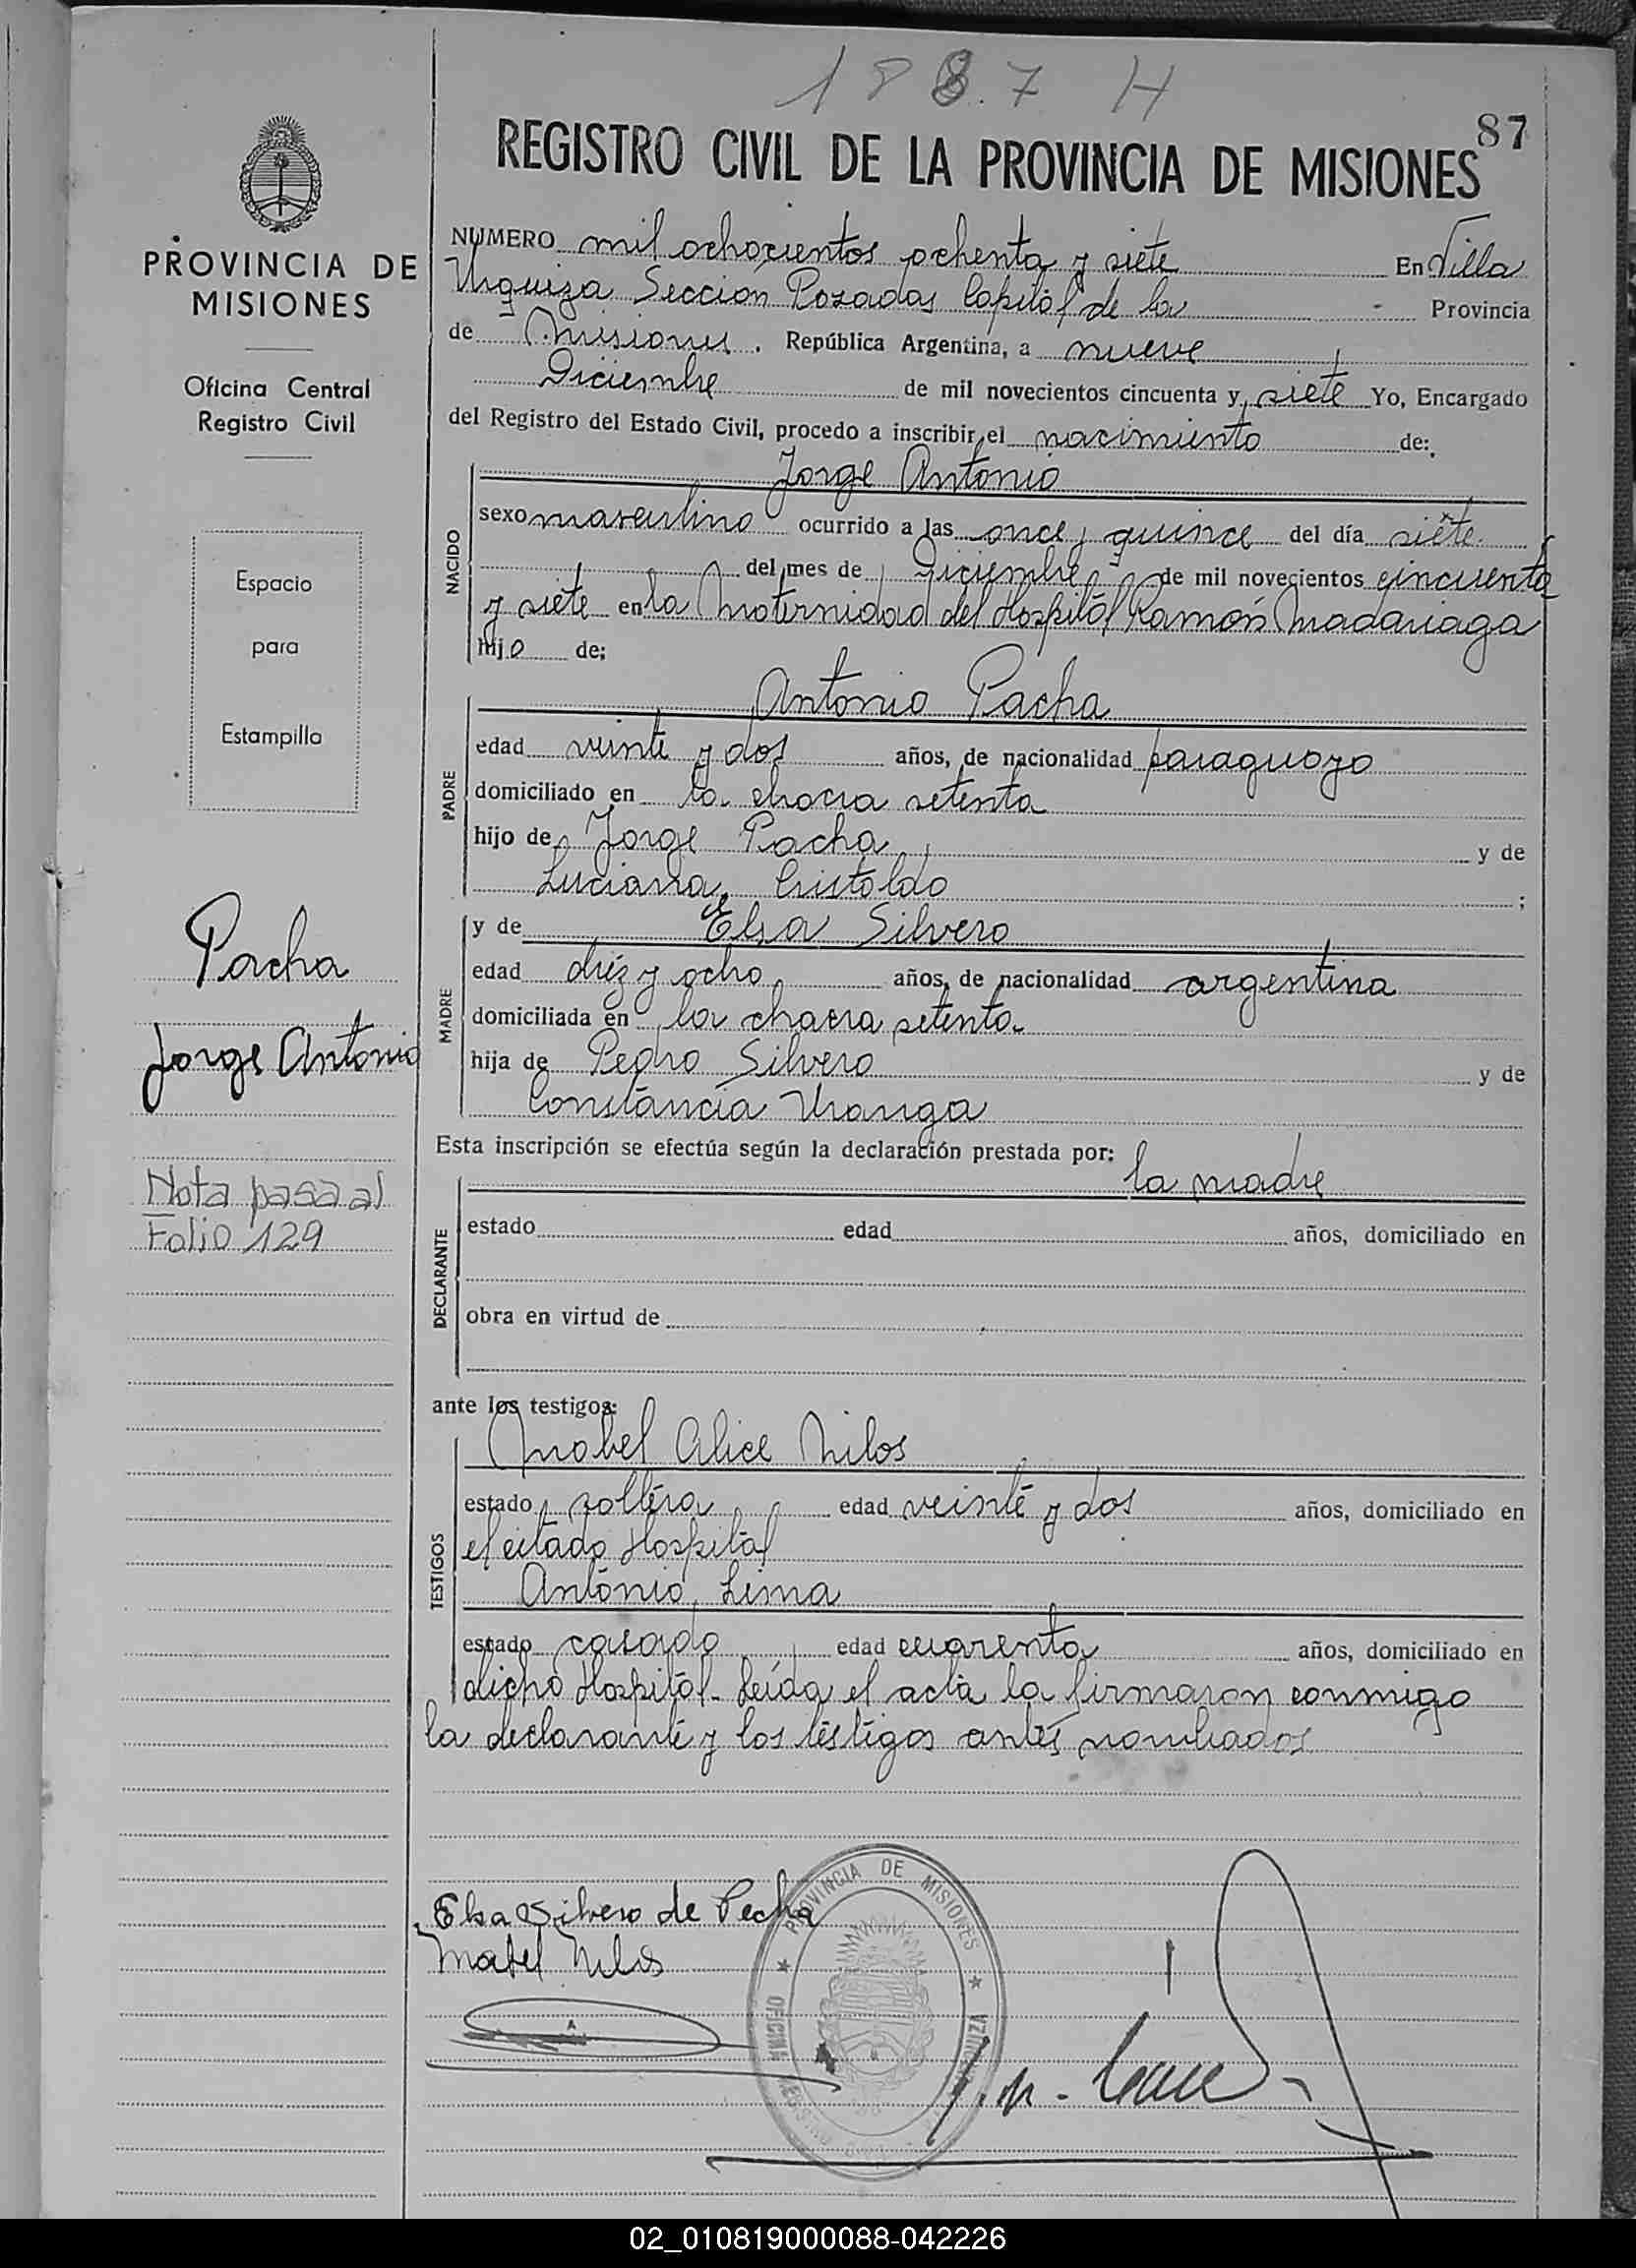 1887 H
87
REGISTRO CIVIL DE LA PROVINCIA DE MISIONES
PROVINCIA DE
MISIONES
Oficina Central
Registro Civil
Espacio
para
Estampilla
Pacha
Jorge Antonio
Nota pasa al
Folio 129
NUMERO mil ochocientos ochenta y siete En Villa
Urquiza Sección Posadas Capital de la Provincia
de Misiones. República Argentina, a nueve
Diciembre de mil novecientos cincuenta y siete Yo, Encargado
del Registro del Estado Civil, procedo a inscribir el nacimiento de:
NACIDO
Jorge Antonio
sexo masculino ocurrido a las once y quince del día siete
del mes de Diciembre de mil novecientos cincuenta
y siete en la Maternidad del Hospital Ramón Madariaga
hijo de:
PADRE
Antonio Pacha
edad veinte y dos años, de nacionalidad paraguayo
domiciliado en la chacra setenta
hijo de Jorge Pacha y de
Luciana Cristaldo ;
MADRE
y de Elsa Silvero
edad diez y ocho años, de nacionalidad argentina
domiciliada en la chacra setenta
hija de Pedro Silvero y de
Constancia Uranga
Esta inscripción se efectúa según la declaración prestada por:
la madre
DECLARANTE
estado edad años, domiciliado en
obra en virtud de
ante los testigos:
TESTIGOS
Mabel Alice Milos
estado soltera edad veinte y dos años, domiciliado en
el citado Hospital
Antonio Lima
estado casado edad cuarenta años, domiciliado en
dicho Hospital - Leída el acta la firmaron conmigo
la declarante y los testigos antes nombrados
Elsa Silvero de Pecha
Mabel Milos
PROVINCIA DE MISIONES
OFICINA
02_010819000088-042226